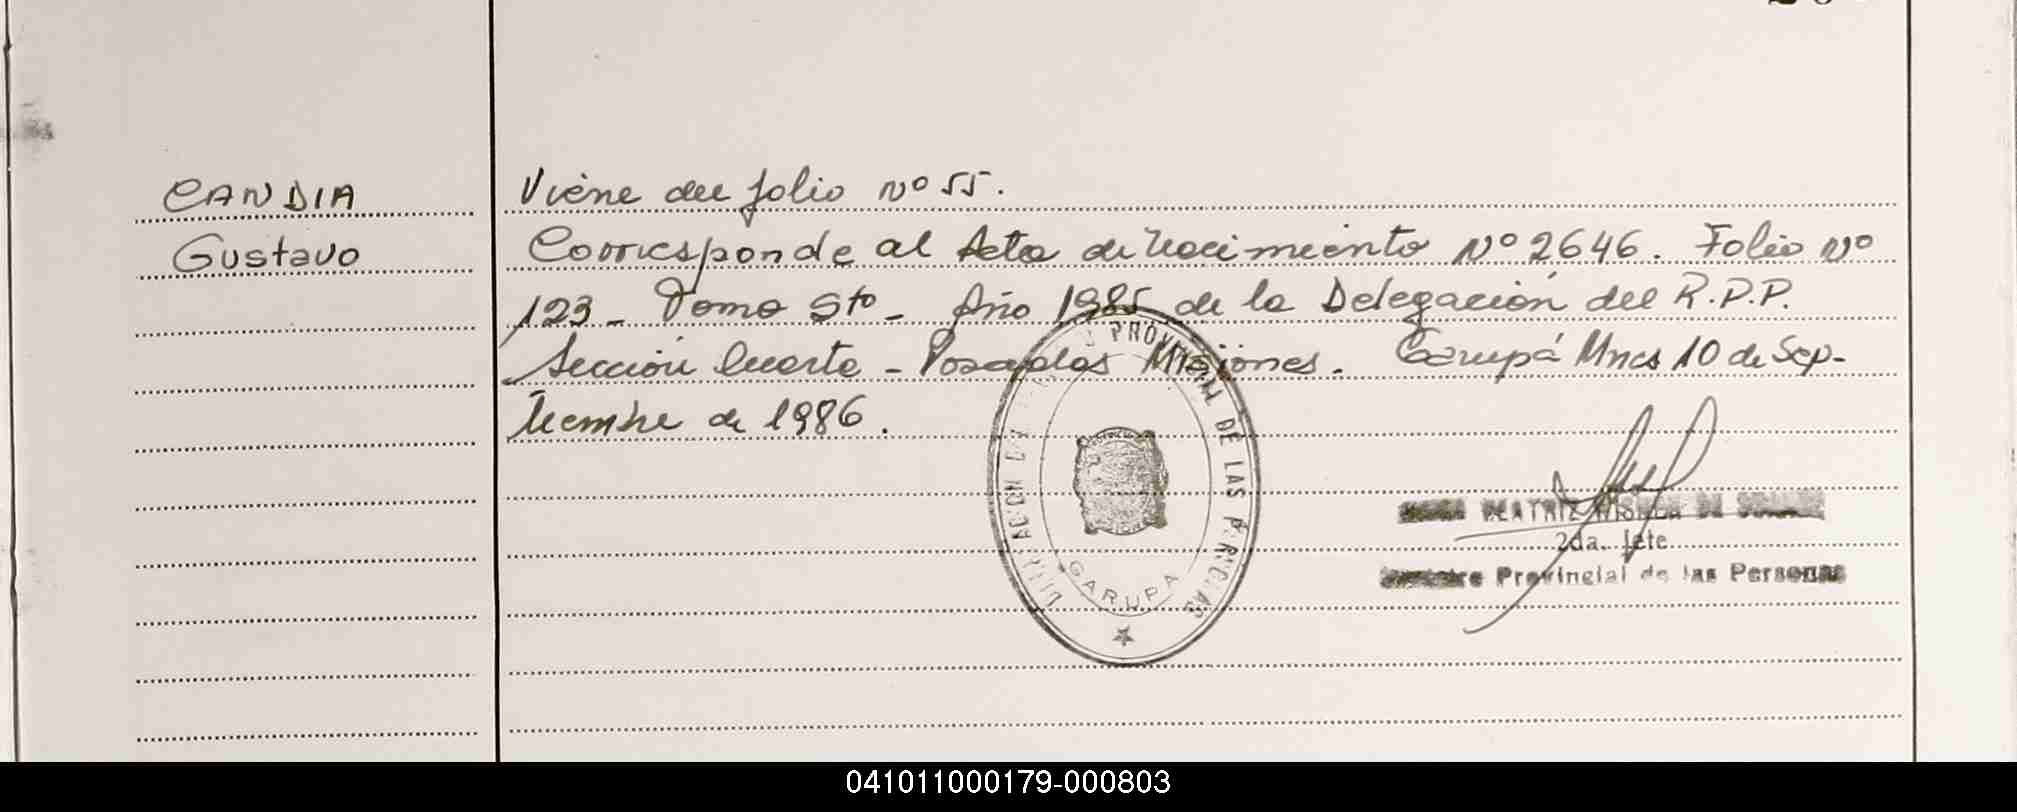 CANDIA
Gustavo
Viene del folio Nº 55.
Corresponde al Acta de Nacimiento Nº 2646. Folio Nº
123 - Tomo 9to - Año 1985 de la Delegación del R.P.P.
Sección Cuarta - Posadas Misiones. Garupá Mnes 10 de Sep-
tiembre de 1986.
PROVINCIAL DE LAS PERSONAS
GARUPA
BEATRIZ DE
2da. Jefe
Provincial de las Personas
041011000179-000803